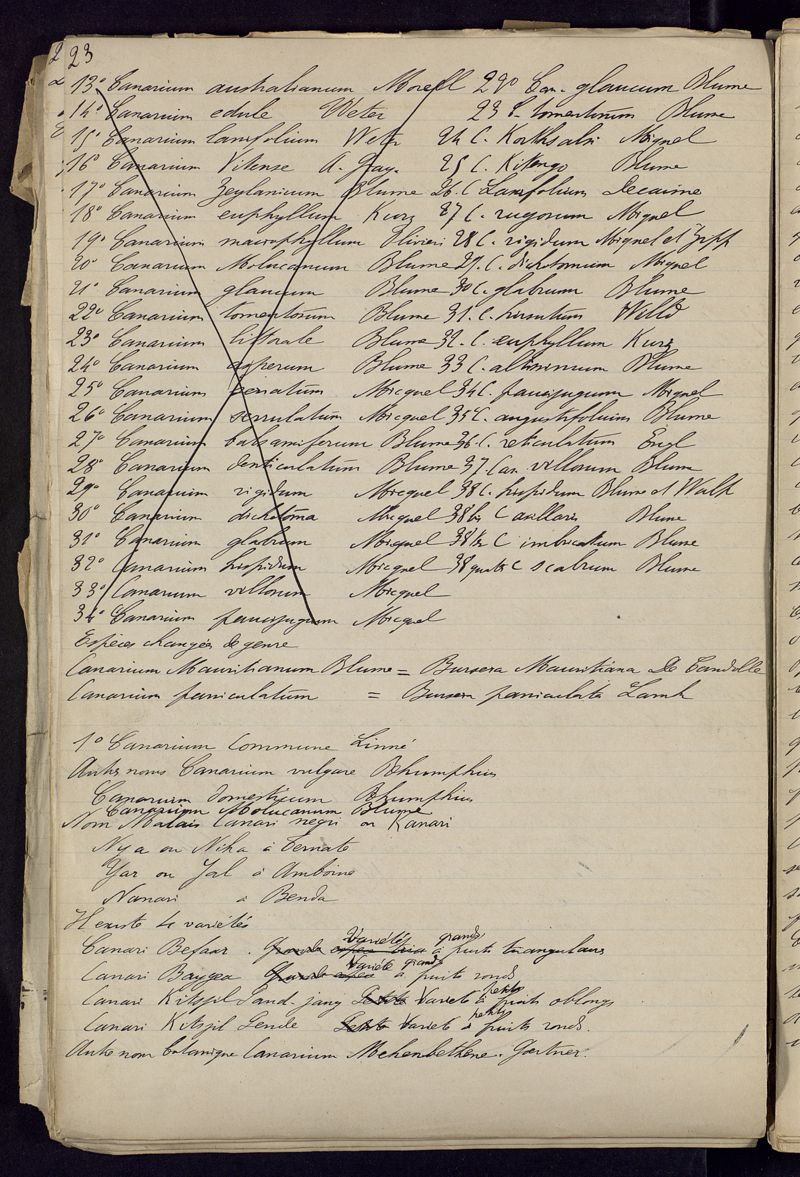 23
13° Canarium australianum Morell 22° Can. glaucum Blume
14° Canarium edule Weter 23 C. tomentosum Blume
15° Canarium lanifolium Wetr 24 C. Korthsalsi Miquel
16° Canarium Vitense A. Gray. 25 C. Kitengo Blume
17° Canarium Zeylanicum Blume 26. C Laxifolium Decaisne
18° Canarium euphyllum Kurz 27 C. rugosum Miquel
19° Canarium macrophyllum Olivieri 28 C. rigidum Miquel et Zipp
20° Canarium Molucanum Blume 29. C. dichotomum Miquel
21° Canarium glaucum Blume 30 C. glabrum Blume
22° Canarium tomentosum Blume 31. C. hirsutum Willd
23° Canarium littorale Blume 32. C. euphyllum Kurz
24° Canarium asperum Blume 33 C. altissimum Blume
25° Canarium Micquel 34 C. paucijugum Miquel
26° Canarium serrulatum Micquel 35 C. angustifolium Blume
27° Canarium balsamiferum Blume 36 C. reticulatum Engl
28° Canarium denticulatum Blume 37 Can. villosum Blum
29° Canarium rigidum Micquel 38 C. hispidum Blume et Walp
30° Canarium dichotoma Micquel 38 bis C axillaris Blume
31° Canarium glabrum Micquel 38 ter C imbricatum Blume
32° Canarium hispidum Micquel 38 quater C scabrum Blume
33° Canarium villosum Micquel
34° Canarium paucijugum Micquel
Espèces changées de genre
Canarium Mauritianum Blume = Bursera Mauritiana De Candolle
Canarium paniculatum = Bursera paniculata Lamk
1° Canarium Commune Linné
Autres noms Canarium vulgare Rhumphius
Canarium domesticum Rhumphius
Canarium Molucanum Blume
Nom Malais Canari negri ou Kanari
Nya ou Niha à Ternate
Yar ou Jal à Amboine
Nanari à Benda
Il existe 4 variétés
Canari Besaar. Grande Variétés à grands fruits triangulaires
Canari Baygea Grande Variété à grands fruits ronds
Canari Kitsjil Dand jang Petite Varieté à petits fruits oblongs
Canari Kitsjil Petite Varieté à petits fruits ronds.
Autre nom botanique Canarium Mehenbethene. Gærtner.